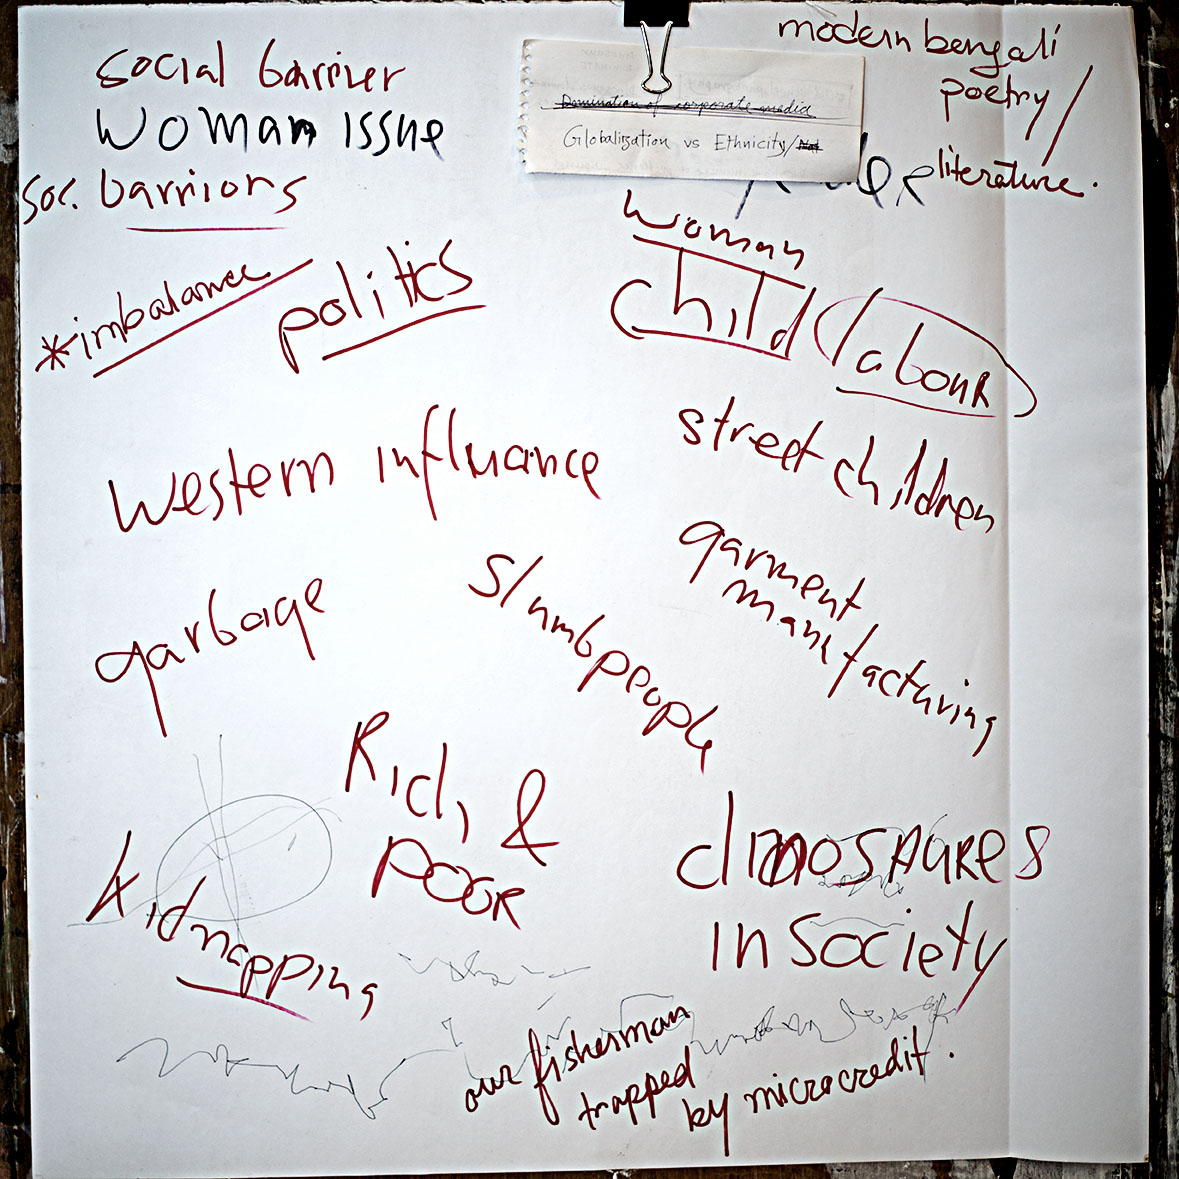 social barrier
Woman issue
soc. barriors
Domination of corporate media
Globalization vs Ethnicity/
modern bengali
poetry/
literature.
*imbalance
politics
woman
child labour
western influance
street children
garbage
slumbpeople
garment
manufacturing
Rich &
POOR
kidnapping
dinospaures
in society
our fisherman
trapped
by microcredit.